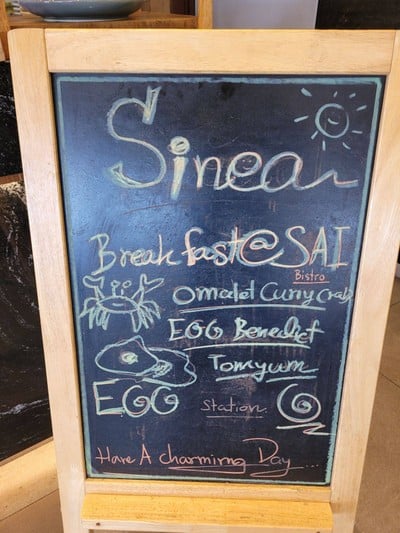 Sinea
Breakfast@SAI
Bistro
Omalet Curry Crab
EGG Benedict
Tomyum
EGG Station
Have A Charming Day....